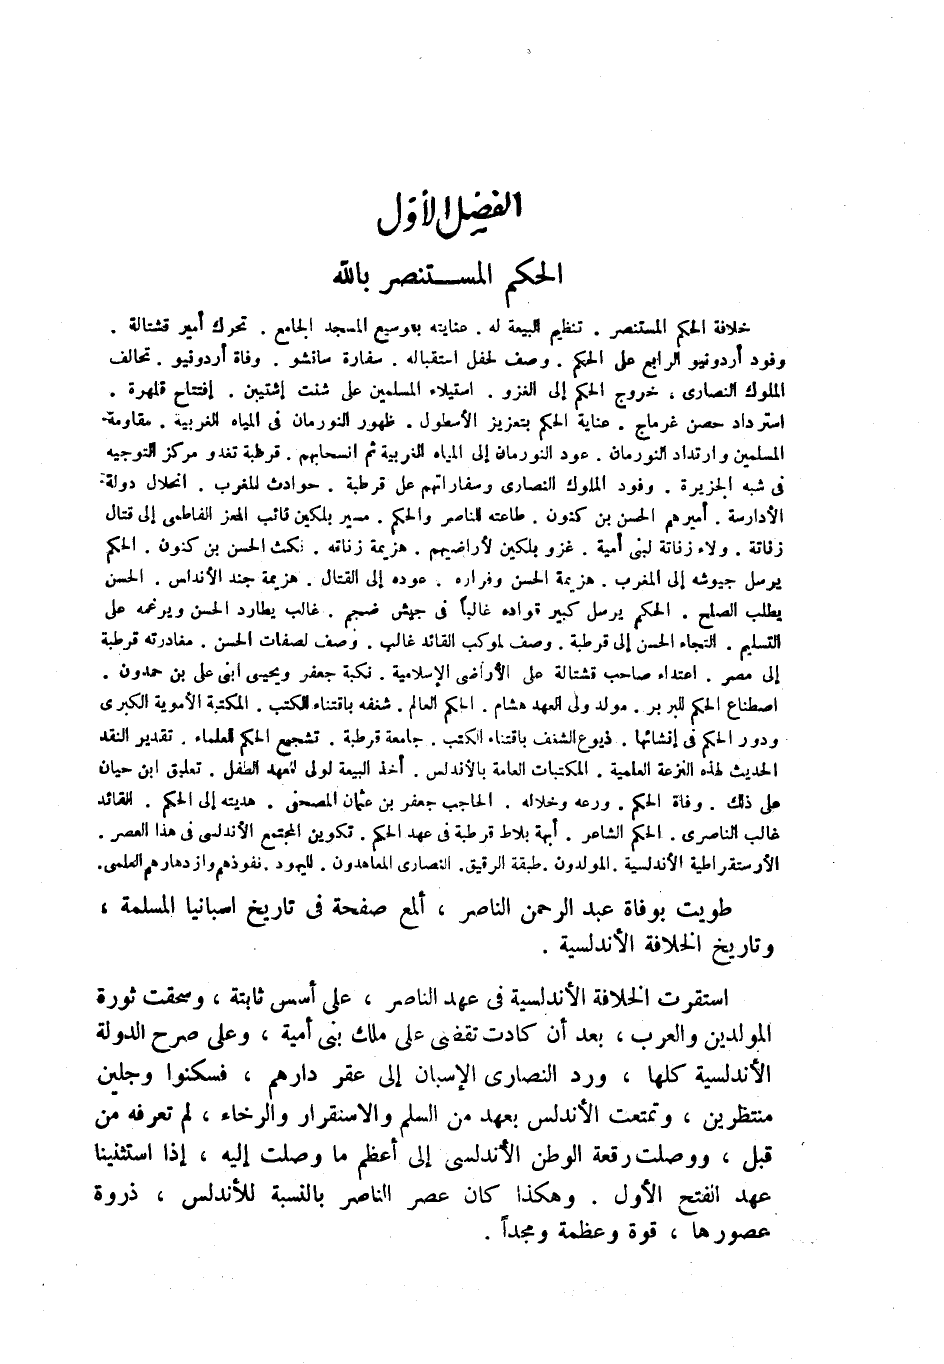 الفصل الأول
الحكم المستنصر بالله
خلافة الحكم المستنصر . تنظيم البيعة له . عنايته بتوسيع المسجد الجامع . تحرك أمير قشتالة .
وفود أردونيو الرابع على الحكم . وصف لحفل استقباله . سفارة سانشو . وفاة أردونيو . تحالف
الملوك النصارى ، خروج الحكم إلى الغزو . استيلاء المسلمين على شنت إشتيبن . إفتتاح قلهرة .
استرداد حصن غرماج . عناية الحكم بتعزيز الأسطول . ظهور النورمان فى المياه الغربية . مقاومة
المسلمين وارتداد النورمان . عود النورمان إلى المياه الغربية ثم انسحابهم . قرطبة تغدو مركز التوجيه
فى شبه الجزيرة . وفود الملوك النصارى وسفاراتهم على قرطبة . حوادث المغرب . انحلال دولة
الأدارسة . أميرهم الحسن بن كنون . طاعته للناصر والحكم . مسير بلكين نائب المعز الفاطمى إلى قتال
زناتة . ولاء زناتة لبنى أمية . غزو بلكين لأراضيهم . هزيمة زناته . نكث الحسن بن كنون . الحكم
يرسل جيوشه إلى المغرب . هزيمة الحسن وفراره . عوده إلى القتال . هزيمة جند الأندلس . الحسن
يطلب الصلح . الحكم يرسل كبير قواده غالباً فى جيش ضخم . غالب يطارد الحسن ويرغمه على
التسليم . التجاء الحسن إلى قرطبة . وصف لموكب القائد غالب . وصف لصفات الحسن . مغادرته قرطبة
إلى مصر . اعتداء صاحب قشتالة على الأراضى الإسلامية . نكبة جعفر ويحيى ابنى على بن حمدون .
اصطناع الحكم للبربر . مولد ولى العهد هشام . الحكم العالم . شغفه باقتناء الكتب . المكتبة الأموية الكبرى
ودور الحكم فى إنشائها . ذيوع الشغف باقتناء الكتب . جامعة قرطبة . تشجيع الحكم للعلماء . تقدير النقد
الحديث لهذه النزعة العلمية . المكتبات العامة بالأندلس . أخذ البيعة لولى العهد الطفل . تعليق ابن حيان
على ذلك . وفاة الحكم . ورعه وخلاله . الحاجب جعفر بن عثمان المصحفى . هديته إلى الحكم . القائد
غالب الناصرى . الحكم الشاعر . أبهة بلاط قرطبة فى عهد الحكم . تكوين المجتمع الأندلسى فى هذا العصر .
الأرستقراطية الأندلسية . المولدون . طبقة الرقيق . النصارى المعاهدون . اليهود . نفوذهم وازدهارهم العلمى .
طويت بوفاة عبد الرحمن الناصر ، ألمع صفحة فى تاريخ اسبانيا المسلمة ،
وتاريخ الخلافة الأندلسية .
استقرت الخلافة الأندلسية فى عهد الناصر ، على أسس ثابتة ، وسحقت ثورة
المولدين والعرب ، بعد أن كادت تقضى على ملك بنى أمية ، وعلى صرح الدولة
الأندلسية كلها ، ورد النصارى الإسبان إلى عقر دارهم ، فسكنوا وجلين
منتظرين ، وتمتعت الأندلس بعهد من السلم والاستقرار والرخاء ، لم تعرفه من
قبل ، ووصلت رقعة الوطن الأندلسى إلى أعظم ما وصلت إليه ، إذا استثنينا
عهد الفتح الأول . وهكذا كان عصر الناصر بالنسبة للأندلس ، ذروة
عصورها ، قوة وعظمة ومجداً .